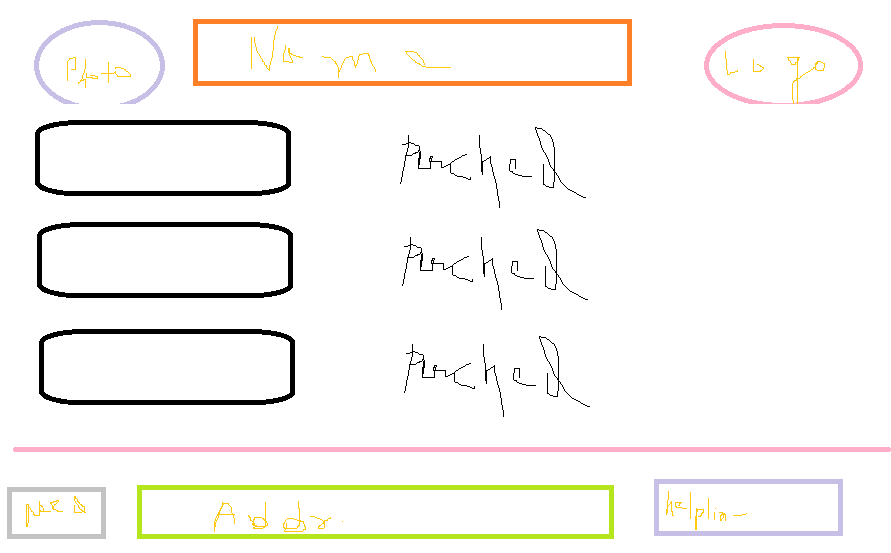 Photo Name Logo
Purched
Purched
Purched
Addr. helplin